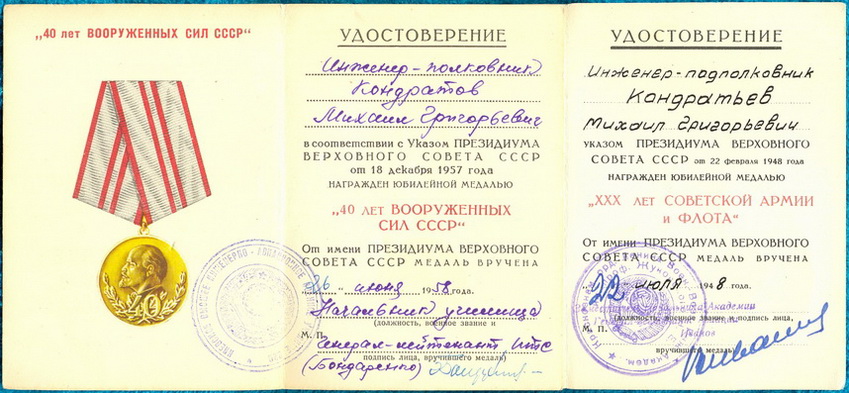 „40 лет ВООРУЖЕННЫХ СИЛ СССР"
40
УДОСТОВЕРЕНИЕ
Инженер-полковник
Кондратов
Михаил Григорьевич
в соответствии с Указом ПРЕЗИДИУМА
ВЕРХОВНОГО СОВЕТА СССР
от 18 декабря 1957 года
НАГРАЖДЕН ЮБИЛЕЙНОЙ МЕДАЛЬЮ
„40 ЛЕТ ВООРУЖЕННЫХ
СИЛ СССР"
От имени ПРЕЗИДИУМА ВЕРХОВНОГО
СОВЕТА СССР МЕДАЛЬ ВРУЧЕНА
„26" июня 1958 года.
Начальник училища
(должность, военное звание и
М. П.
генерал-лейтенант ИТС
подпись лица, вручившего медаль)
(Бондаренко)
УДОСТОВЕРЕНИЕ
Инженер-подполковник
Кондратьев
Михаил Григорьевич
УКАЗОМ ПРЕЗИДИУМА ВЕРХОВНОГО
СОВЕТА СССР от 22 февраля 1948 года
НАГРАЖДЕН ЮБИЛЕЙНОЙ МЕДАЛЬЮ
„XXX лет СОВЕТСКОЙ АРМИИ
и ФЛОТА"
От имени ПРЕЗИДИУМА ВЕРХОВНОГО
СОВЕТА СССР МЕДАЛЬ ВРУЧЕНА
„22" июля 1948 года.
Академии
(должность, военное звание и подпись лица,
М. П.
Иванов
вручившего медаль)